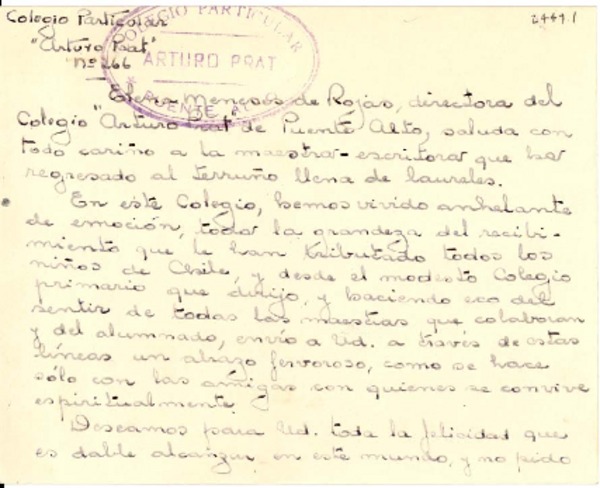 Colegio Particular
"Arturo Prat"
Nº 266
2449.1
COLEGIO PARTICULAR
ARTURO PRAT
* PUENTE ALTO *
Elena Meneses de Rojas, directora del
Colegio "Arturo Prat" de Puente Alto, saluda con
todo cariño a la maestra-escritora que ha
regresado al terruño llena de laureles.
En este Colegio, hemos vivido anhelante
de emoción, toda la grandeza del recibi-
miento que le han tributado todos los
niños de Chile, y desde el modesto Colegio
primario que dirijo, y haciendo eco del
sentir de todas las maestras que colaboran
y del alumnado, envío a Ud. a través de estas
líneas un abrazo fervoroso, como se hace
sólo con las amigas con quienes se convive
espiritualmente
Deseamos para Ud. toda la felicidad que
es dable alcanzar en este mundo, y no pido